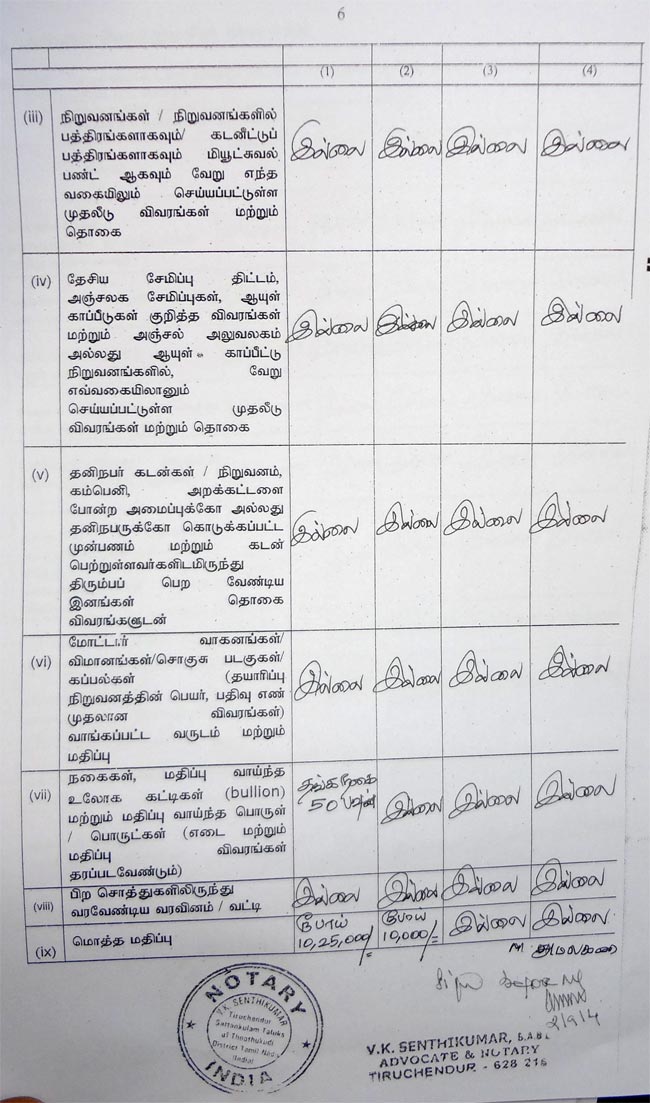 6
(1) (2) (3) (4)
(iii) நிறுவனங்கள் / நிறுவனங்களில்
பத்திரங்களாகவும்/ கடனீட்டுப்
பத்திரங்களாகவும் மியூட்சுவல்
பண்ட் ஆகவும் வேறு எந்த
வகையிலும் செய்யப்பட்டுள்ள
முதலீடு விவரங்கள் மற்றும்
தொகை
இல்லை இல்லை இல்லை இல்லை
(iv) தேசிய சேமிப்பு திட்டம்,
அஞ்சலக சேமிப்புகள், ஆயுள்
காப்பீடுகள் குறித்த விவரங்கள்
மற்றும் அஞ்சல் அலுவலகம்
அல்லது ஆயுள் காப்பீட்டு
நிறுவனங்களில், வேறு
எவ்வகையிலானும்
செய்யப்பட்டுள்ள முதலீடு
விவரங்கள் மற்றும் தொகை
இல்லை இல்லை இல்லை இல்லை
(v) தனிநபர் கடன்கள் / நிறுவனம்,
கம்பெனி, அறக்கட்டளை
போன்ற அமைப்புக்கோ அல்லது
தனிநபருக்கோ கொடுக்கப்பட்ட
முன்பணம் மற்றும் கடன்
பெற்றுள்ளவர்களிடமிருந்து
திரும்பப் பெற வேண்டிய
இனங்கள் தொகை
விவரங்களுடன்
இல்லை இல்லை இல்லை இல்லை
(vi) மோட்டார் வாகனங்கள்/
விமானங்கள்/சொகுசு படகுகள்/
கப்பல்கள் (தயாரிப்பு
நிறுவனத்தின் பெயர், பதிவு எண்
முதலான விவரங்கள்)
வாங்கப்பட்ட வருடம் மற்றும்
மதிப்பு
இல்லை இல்லை இல்லை இல்லை
(vii) நகைகள், மதிப்பு வாய்ந்த
உலோக கட்டிகள் (bullion)
மற்றும் மதிப்பு வாய்ந்த பொருள்
/ பொருட்கள் (எடை மற்றும்
மதிப்பு விவரங்கள்
தரப்படவேண்டும்)
தங்க நகை
50 பவுன் இல்லை இல்லை இல்லை
(viii) பிற சொத்துகளிலிருந்து
வரவேண்டிய வரவினம் / வட்டி
இல்லை இல்லை இல்லை இல்லை
(ix) மொத்த மதிப்பு
ரூபாய் 10,25,000/= ரூபாய் 10,000/= இல்லை இல்லை
NOTARY
V.K. SENTHIKUMAR
Tiruchendur
Sattankulam Taluks
of Thoothukudi
District Tamil Nadu
(India)
INDIA
2/9/4
V.K. SENTHIKUMAR, B.A.B.L
ADVOCATE & NOTARY
TIRUCHENDUR - 628 216